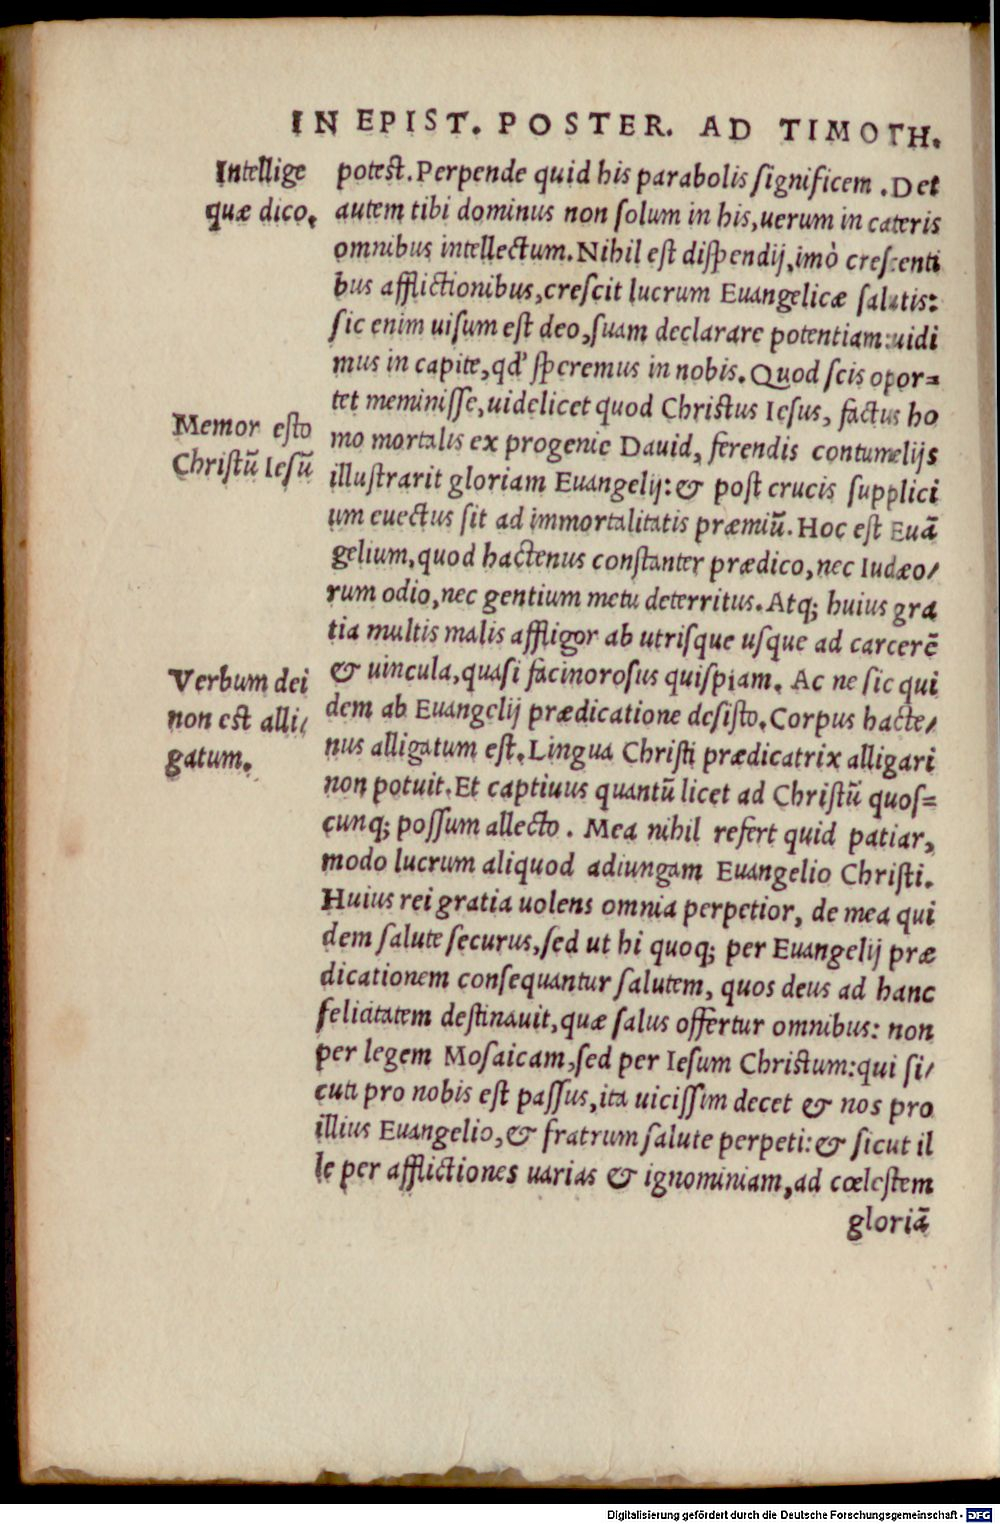 IN EPIST. POSTER. AD TIMOTH.
Intellige
quæ dico.
potest. Perpende quid his parabolis significem. Det
autem tibi dominus non solum in his, uerum in cæteris
omnibus intellectum. Nihil est dispendij, imò crescenti
bus afflictionibus, crescit lucrum Euangelicæ salutis:
sic enim uisum est deo, suam declarare potentiam: uidi
mus in capite, qd' speremus in nobis. Quod scis opor=
tet meminisse, uidelicet quod Christus Iesus, factus ho
Memor esto
Christũ Iesũ
mo mortalis ex progenie Dauid, ferendis contumelijs
illustrarit gloriam Euangelij: & post crucis supplici
um euectus sit ad immortalitatis præmiũ. Hoc est Euã
gelium, quod hactenus constanter prædico, nec Iudæo/
rum odio, nec gentium metu deterritus. Atq; huius gra
tia multis malis affligor ab utrisque usque ad carcerẽ
Verbum dei
non est alli/
gatum.
& uincula, quasi facinorosus quispiam. Ac ne sic qui
dem ab Euangelij prædicatione desisto. Corpus hacte/
nus alligatum est. Lingua Christi prædicatrix alligari
non potuit. Et captiuus quantũ licet ad Christũ quos=
cunq; possum allecto. Mea nihil refert quid patiar,
modo lucrum aliquod adiungam Euangelio Christi.
Huius rei gratia uolens omnia perpetior, de mea qui
dem salute securus, sed ut hi quoq; per Euangelij præ
dicationem consequantur salutem, quos deus ad hanc
felicitatem destinauit, quæ salus offertur omnibus: non
per legem Mosaicam, sed per Iesum Christum: qui si/
cuti pro nobis est passus, ita uicissim decet & nos pro
illius Euangelio, & fratrum salute perpeti: & sicut il
le per afflictiones uarias & ignominiam, ad cœlestem
gloriã
Digitalisierung gefördert durch die Deutsche Forschungsgemeinschaft - DFG